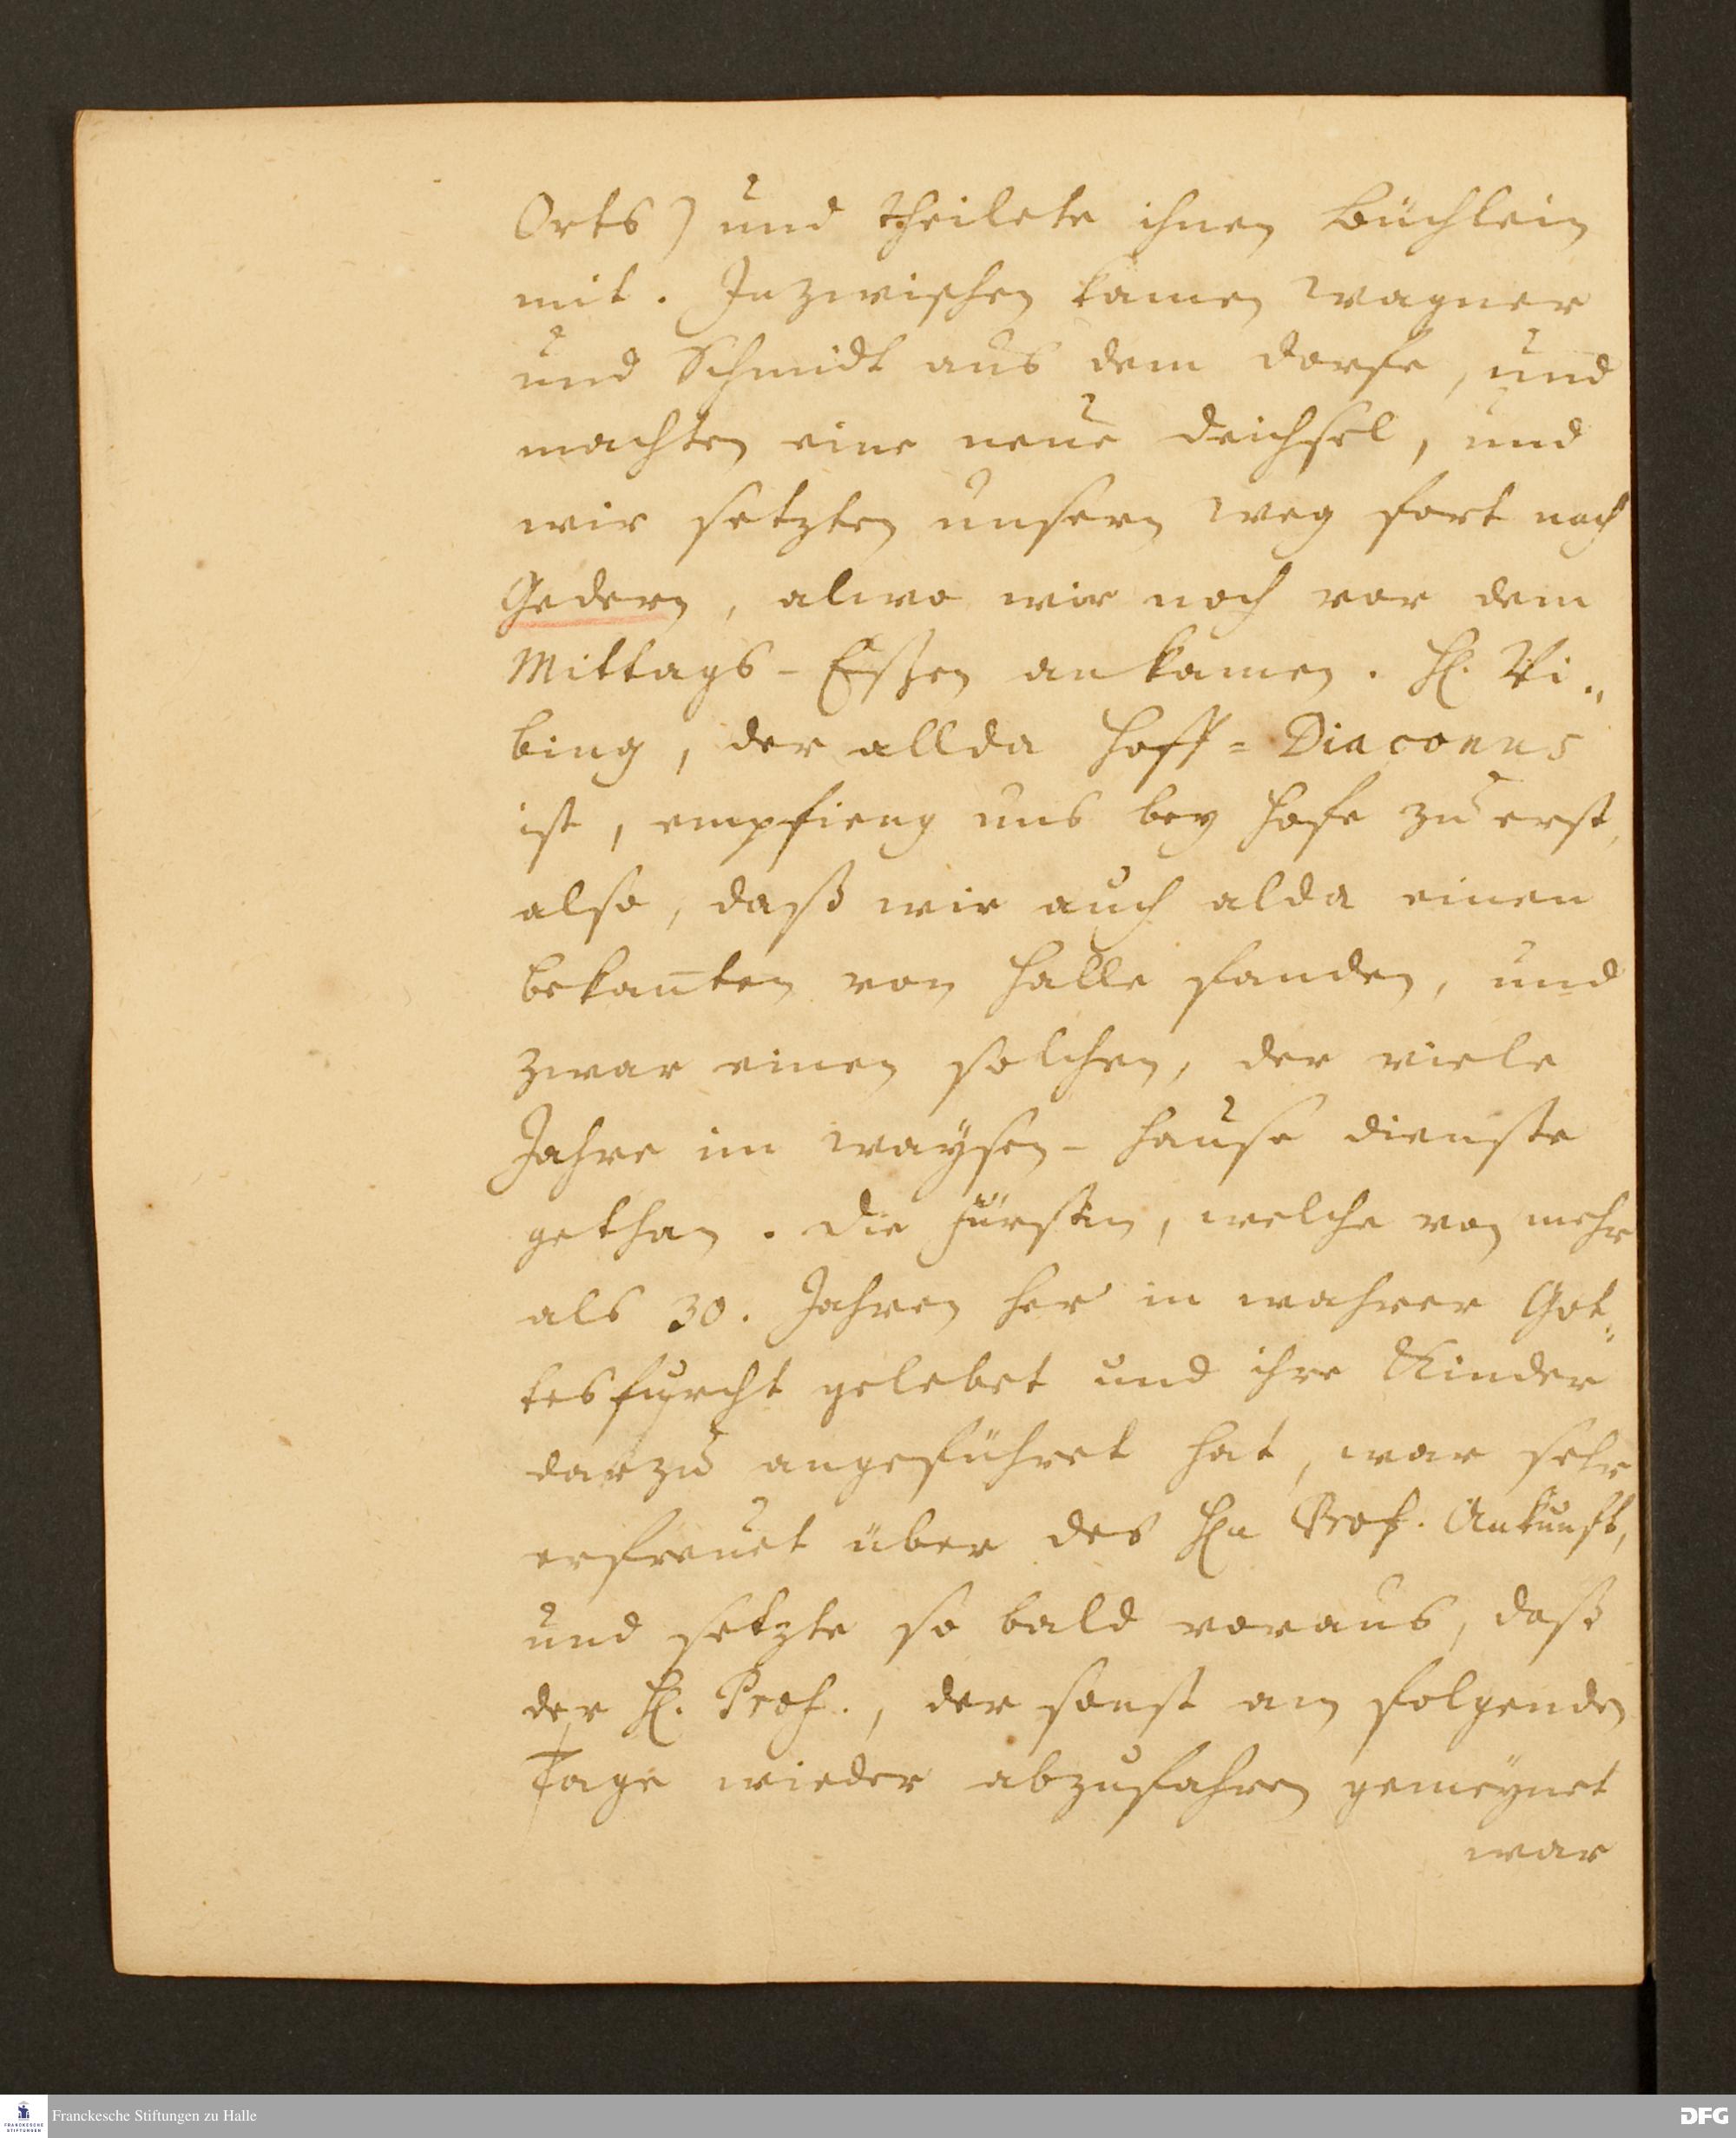 Orts) und theilete ihnen Büchlein
mit. Inzwischen kamen Wagner
und Schmidt aus dem Dorfe, und
machten eine neue Deichsel, und
wir setzten unsern Weg fort nach
Gedern, alwo wir noch vor dem
Mittags-Essen ankamen. H. Vi„
bing, der allda Hoff=Diaconus
ist, empfieng uns bey Hofe zu erst,
also, daß wir auch alda einen
bekan̅ten von Halle fanden, und
zwar einen solchen, der viele
Jahre im Waysen-Hause dienste
gethan. Die Fürstin, welche von mehr
als 30. Jahren her in wahrer Got„
tesfurcht gelebet und ihre Kinder
darzu angeführet hat, war sehr
erfreuet über des Hn Prof. Ankunft,
und setzte so bald voraus, daß
der H. Prof., der sonst am folgenden
Tage wieder abzufahren gemeynet
war
Franckesche Stiftungen zu Halle
FRANCKESCHE
STIFTUNGEN
DFG